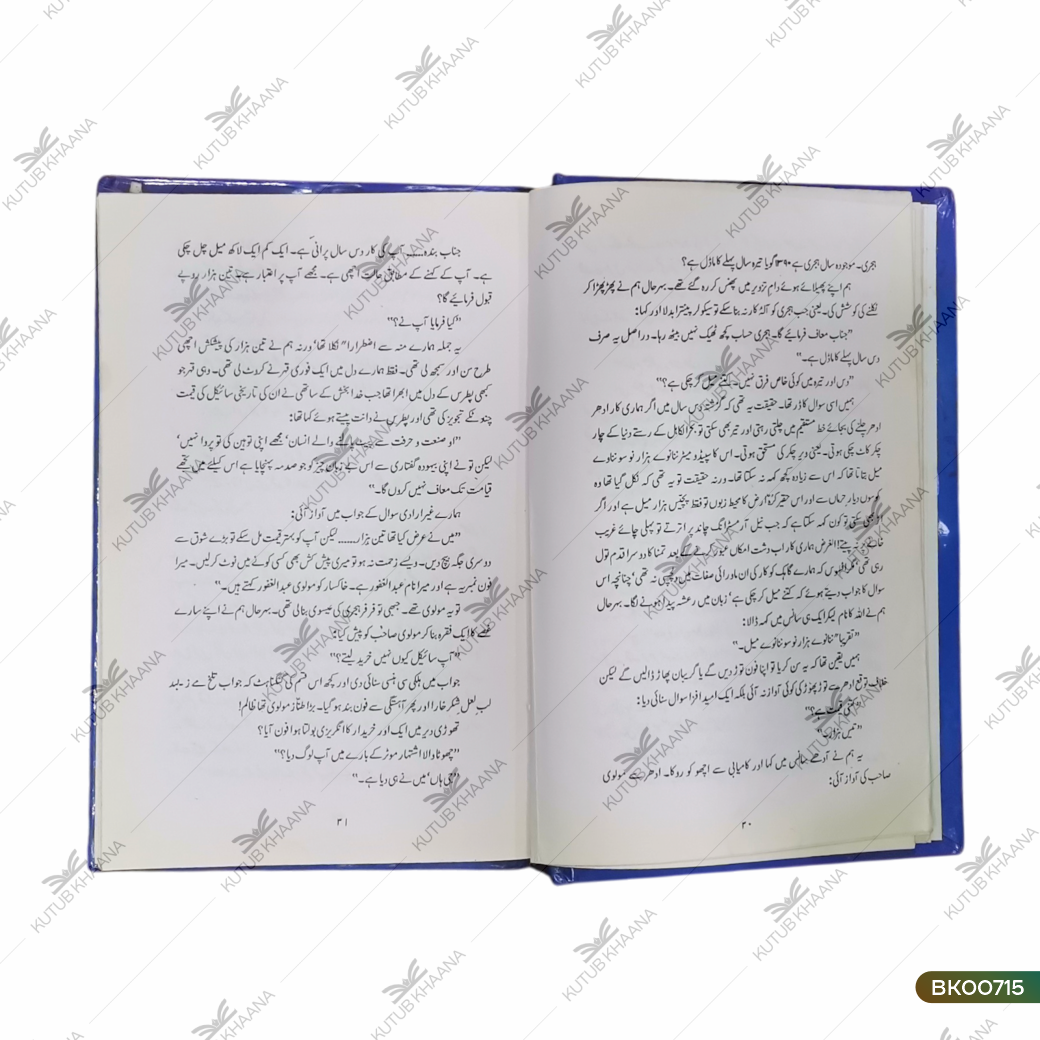 ہجری۔ موجودہ سال ہجری ہے ۱۳۹۰ گویا تیرہ سال پہلے کا ماڈل ہے؟
ہم اپنے پھیلائے ہوئے دام تزویر میں پھنس کر رہ گئے تھے۔ بہرحال ہم نے پھڑپھڑا کر
نکلنے کی کوشش کی۔ یعنی جب ہجری کو آلہ کار نہ بنا سکے تو سیکولر پینترا بدلا اور کہا:
"جناب معاف فرمائیے گا۔ ہجری حساب کچھ ٹھیک نہیں بیٹھ رہا۔ دراصل یہ صرف
دس سال پہلے کا ماڈل ہے۔"
"دس اور تیرہ میں کوئی خاص فرق نہیں۔ کتنے میل کر چکی ہے؟"
ہمیں اسی سوال کا ڈر تھا۔ حقیقت یہ تھی کہ گزشتہ دس سال میں اگر ہماری کار ادھر
ادھر چلنے کی بجائے خط مستقیم میں چلتی رہتی اور تیر بھی سکتی تو بحرالکاہل کے رستے دنیا کے چار
چکر کاٹ چکی ہوتی۔ یعنی ویر چکر کی مستحق ہوتی۔ اس کا سپیڈومیٹر ننانوے ہزار نو سو ننانوے
میل بتاتا تھا کہ اس سے زیادہ کچھ کہہ نہ سکتا تھا۔ ورنہ حقیقت تو یہ تھی کہ نکل گیا تھا وہ
کوسوں دیار حرماں سے اور اس حقیر کرۂ ارض کا محیط زبوں تو فقط پچیس ہزار میل ہے اور اگر
اڑ بھی سکتی تو کون کہہ سکتا ہے کہ جب نیل آرمسٹرانگ چاند پر اترتے تو پہلی چائے غریب
خانے پر نہ پیتے! الغرض ہماری کار اب دشت امکاں عبور کرنے کے بعد تمنا کا دوسرا قدم تول
رہی تھی، مگر افسوس کہ ہمارے گاہک کو کار کی ان ماورائی صفات میں دلچسپی نہ تھی، چنانچہ اس
سوال کا جواب دیتے ہوئے کہ کتنے میل کر چکی ہے، زبان میں رعشہ پیدا ہونے لگا۔ بہرحال
ہم نے اللہ کا نام لیکر ایک ہی سانس میں کہہ ڈالا:
"تقریباً ننانوے ہزار نو سو ننانوے میل۔"
ہمیں یقین تھا کہ یہ سن کر یا تو اپنا فون توڑ دیں گے یا گریبان پھاڑ ڈالیں گے لیکن
خلاف توقع ادھر سے توڑ پھوڑ کی کوئی آواز نہ آئی بلکہ ایک امید افزا سوال سنائی دیا:
"کتنی قیمت ہے؟"
"تیس ہزار"
یہ ہم نے آدھے سانس میں کہا اور کامیابی سے اچھو کو روکا۔ ادھر سے مولوی
صاحب کی آواز آئی:
۳۰
جناب بندہ...... آپ کی کار دس سال پرانی ہے۔ ایک کم ایک لاکھ میل چل چکی
ہے۔ آپ کے کہنے کے مطابق حالت اچھی ہے۔ مجھے آپ پر اعتبار ہے۔ تین ہزار روپے
قبول فرمائیے گا؟
"کیا فرمایا آپ نے؟"
یہ جملہ ہمارے منہ سے اضطراراً نکلا تھا، ورنہ ہم نے تین ہزار کی پیشکش اچھی
طرح سن اور سمجھ لی تھی۔ فقط ہمارے دل میں ایک فوری قہر نے کروٹ لی تھی۔ وہی قہر جو
کبھی پطرس کے دل میں ابھرا تھا جب خدا بخش کے ساتھی نے ان کی تاریخی سائیکل کی قیمت
چند ٹکے تجویز کی تھی اور پطرس نے دانت پیستے ہوئے کہا تھا:
"او صنعت و حرفت سے پیٹ پالنے والے انسان، مجھے اپنی توہین کی تو پروا نہیں،
لیکن تو نے اپنی بیہودہ گفتاری سے اس بے زبان چیز کو جو صدمہ پہنچایا ہے اس کیلئے میں تجھے
قیامت تک معاف نہیں کروں گا۔"
ہمارے غیر ارادی سوال کے جواب میں آواز آئی:
"میں نے عرض کیا تھا تین ہزار...... لیکن آپ کو بہتر قیمت مل سکے تو بڑے شوق سے
دوسری جگہ بیچ دیں۔ ویسے زحمت نہ ہو تو میری پیش کش بھی کسی کونے میں نوٹ کرلیں۔ میرا
فون نمبر یہ ہے اور میرا نام عبدالغفور ہے۔ خاکسار کو مولوی عبدالغفور کہتے ہیں۔"
تو یہ مولوی تھے۔ جبھی تو فرفر ہجری کی عیسوی بنا لی تھی۔ بہرحال ہم نے اپنے سارے
غصے کا ایک فقرہ بنا کر مولوی صاحب کو پیش کیا:
"آپ سائیکل کیوں نہیں خرید لیتے؟"
جواب میں ہلکی سی ہنسی سنائی دی اور کچھ اس قسم کی گنگناہٹ کہ جواب تلخ مے زیبد
لب لعل شکر خارا اور پھر آہستگی سے فون بند ہو گیا۔ بڑا طناز مولوی تھا ظالم!
تھوڑی دیر میں ایک اور خریدار کا انگریزی بولتا ہوا فون آیا؟
"چھوٹا والا اشتہار موٹر کے بارے میں آپ لوگ دیا؟"
"جی ہاں، میں نے ہی دیا ہے۔"
۳۱
KUTUB KHAANA
BK00715